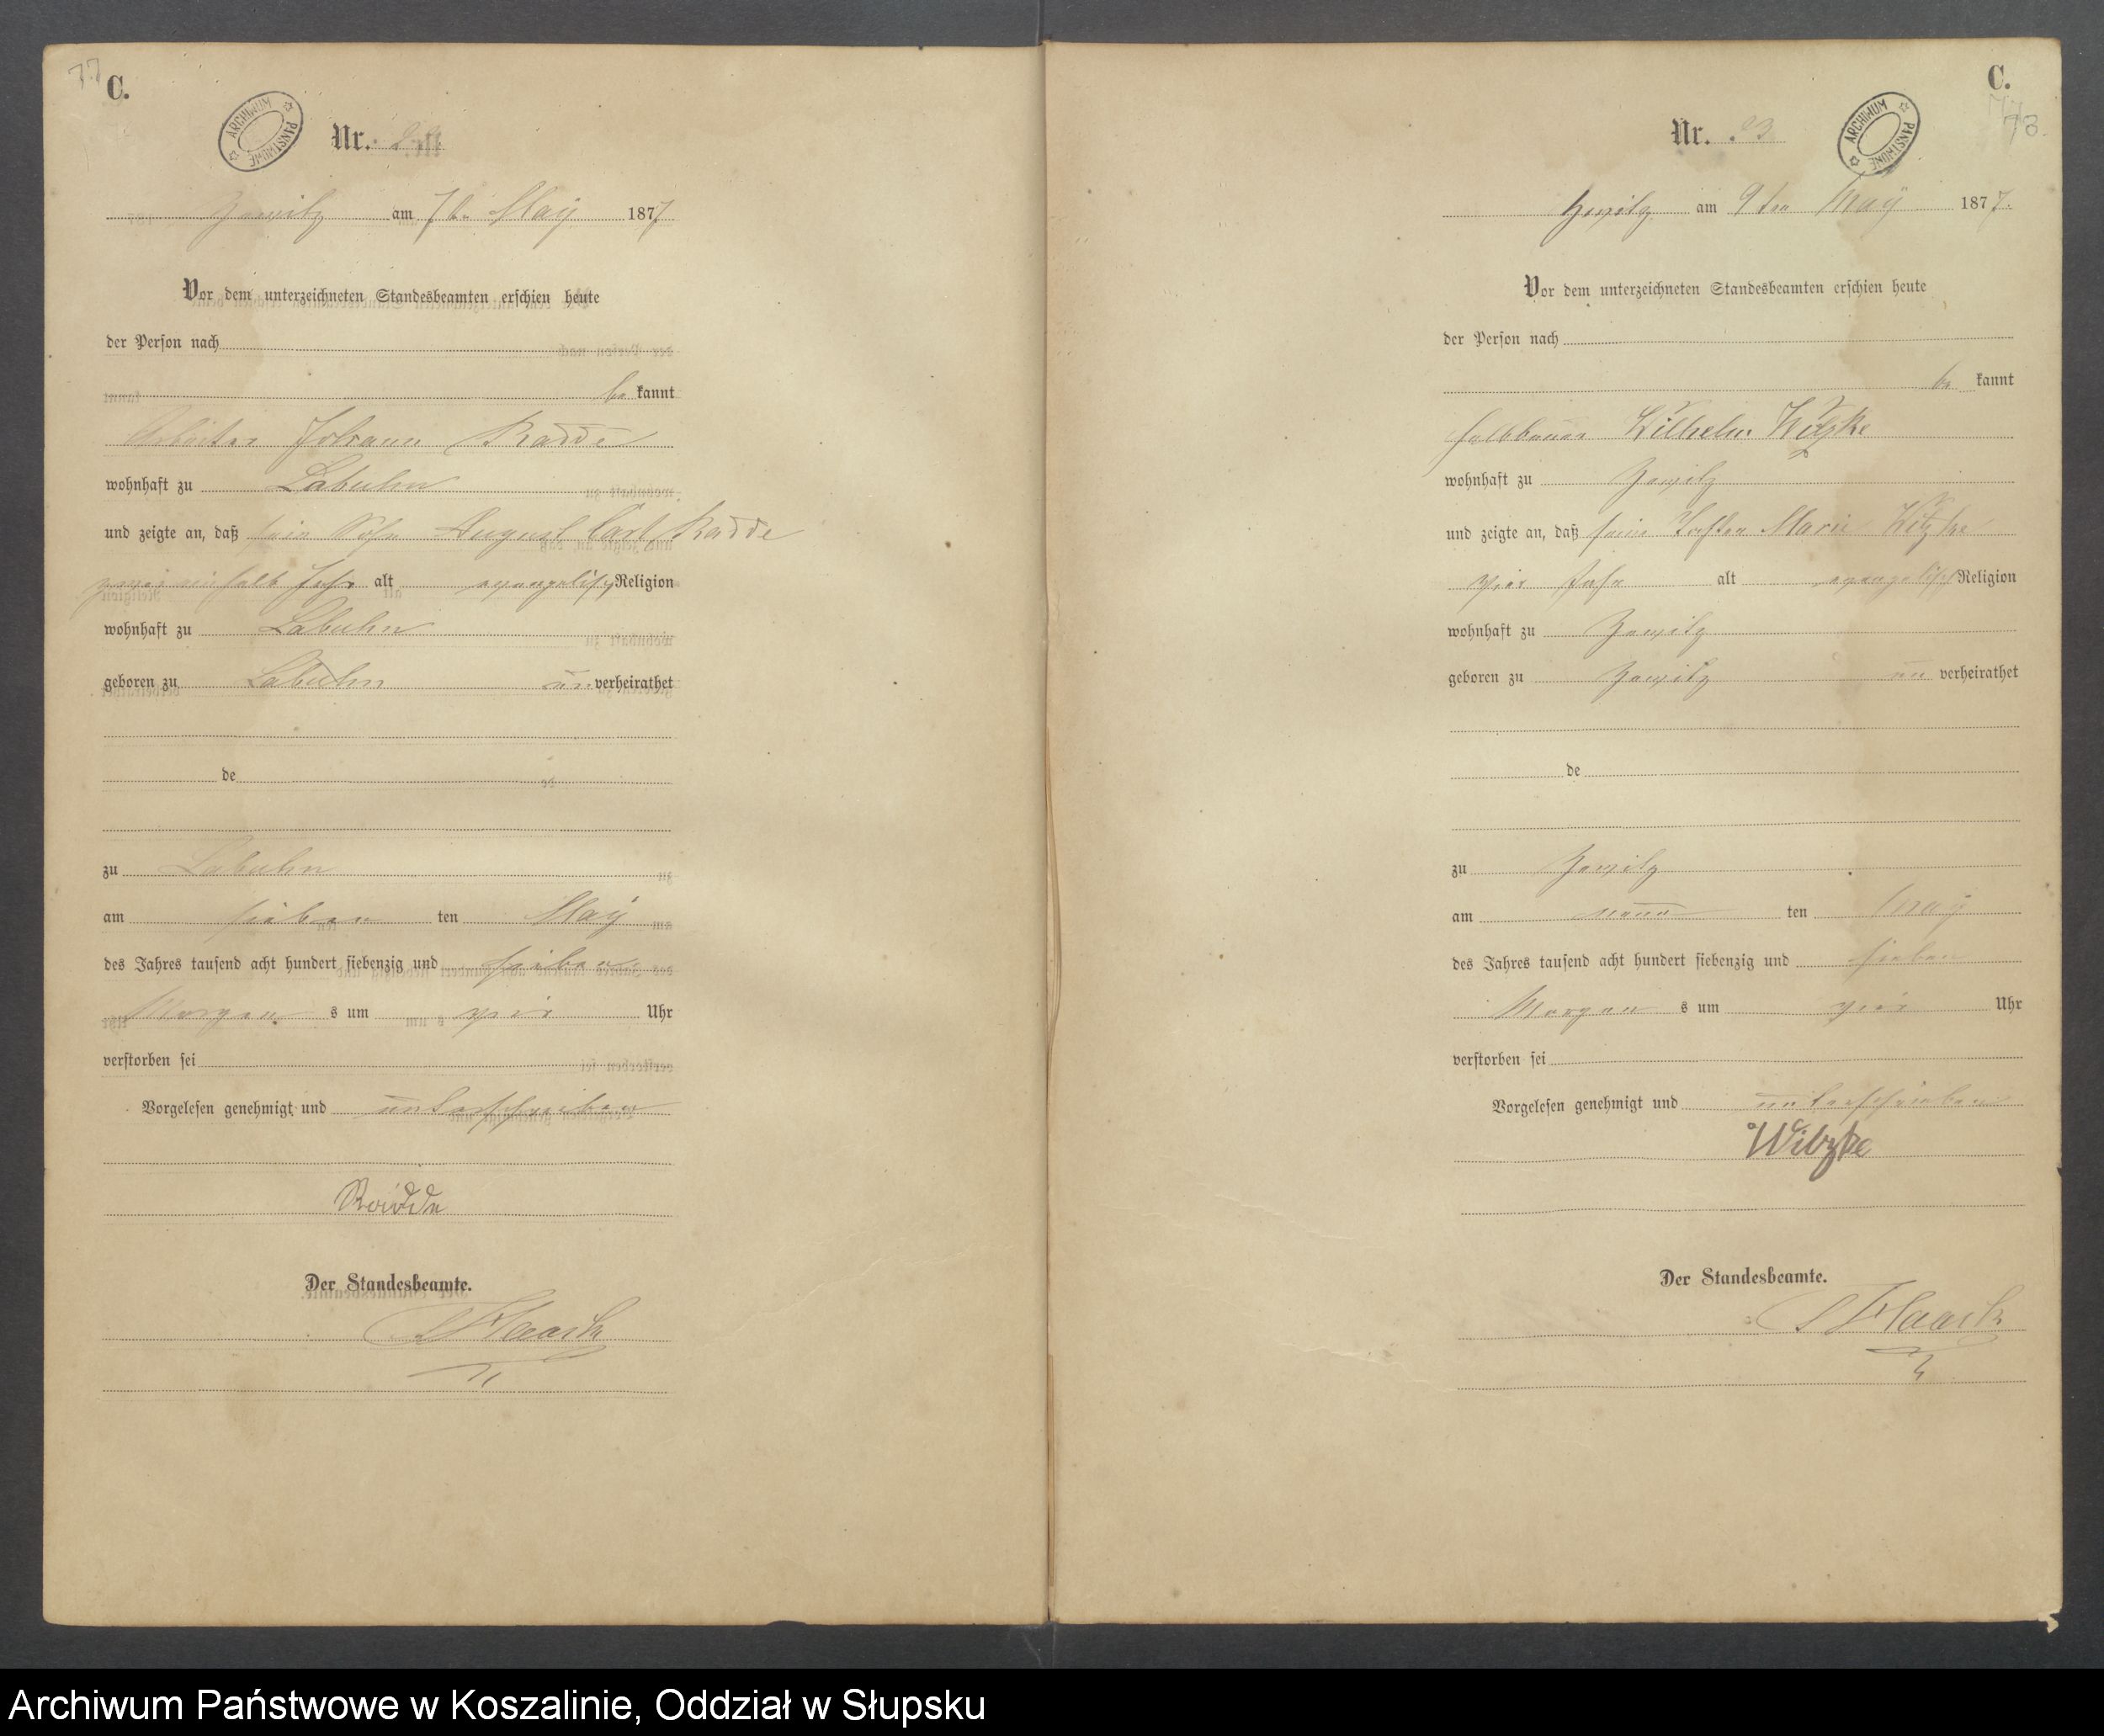 77
C.
ARCHIWUM PAŃSTWOWE
Nr. 22
Zewitz am 7ten May 1877
Vor dem unterzeichneten Standesbeamten erschien heute
der Person nach
be kannt
Arbeiter Johann Radde
wohnhaft zu Labuhn
und zeigte an, daß sein Sohn August Carl Radde
zwei ein halb Jahr alt evangelisch Religion
wohnhaft zu Labuhn
geboren zu Labuhn un verheirathet
de
zu Labuhn
am sieben ten May
des Jahres tausend acht hundert siebenzig und sieben
Morgen s um vier Uhr
verstorben sei
Vorgelesen genehmigt und unterschrieben
Radde
Der Standesbeamte.
Haack
C.
ARCHIWUM PAŃSTWOWE
78.
Nr. 23
Zewitz am 9ten May 1877.
Vor dem unterzeichneten Standesbeamten erschien heute
der Person nach
be kannt
Halbbauer Wilhelm Witzke
wohnhaft zu Zewitz
und zeigte an, daß seine Tochter Marie Witzke
vier Jahr alt evangelisch Religion
wohnhaft zu Zewitz
geboren zu Zewitz un verheirathet
de
zu Zewitz
am neun ten May
des Jahres tausend acht hundert siebenzig und sieben
Morgen s um vier Uhr
verstorben sei
Vorgelesen genehmigt und unterschrieben
Witzke
Der Standesbeamte.
Haack
Archiwum Państwowe w Koszalinie, Oddział w Słupsku